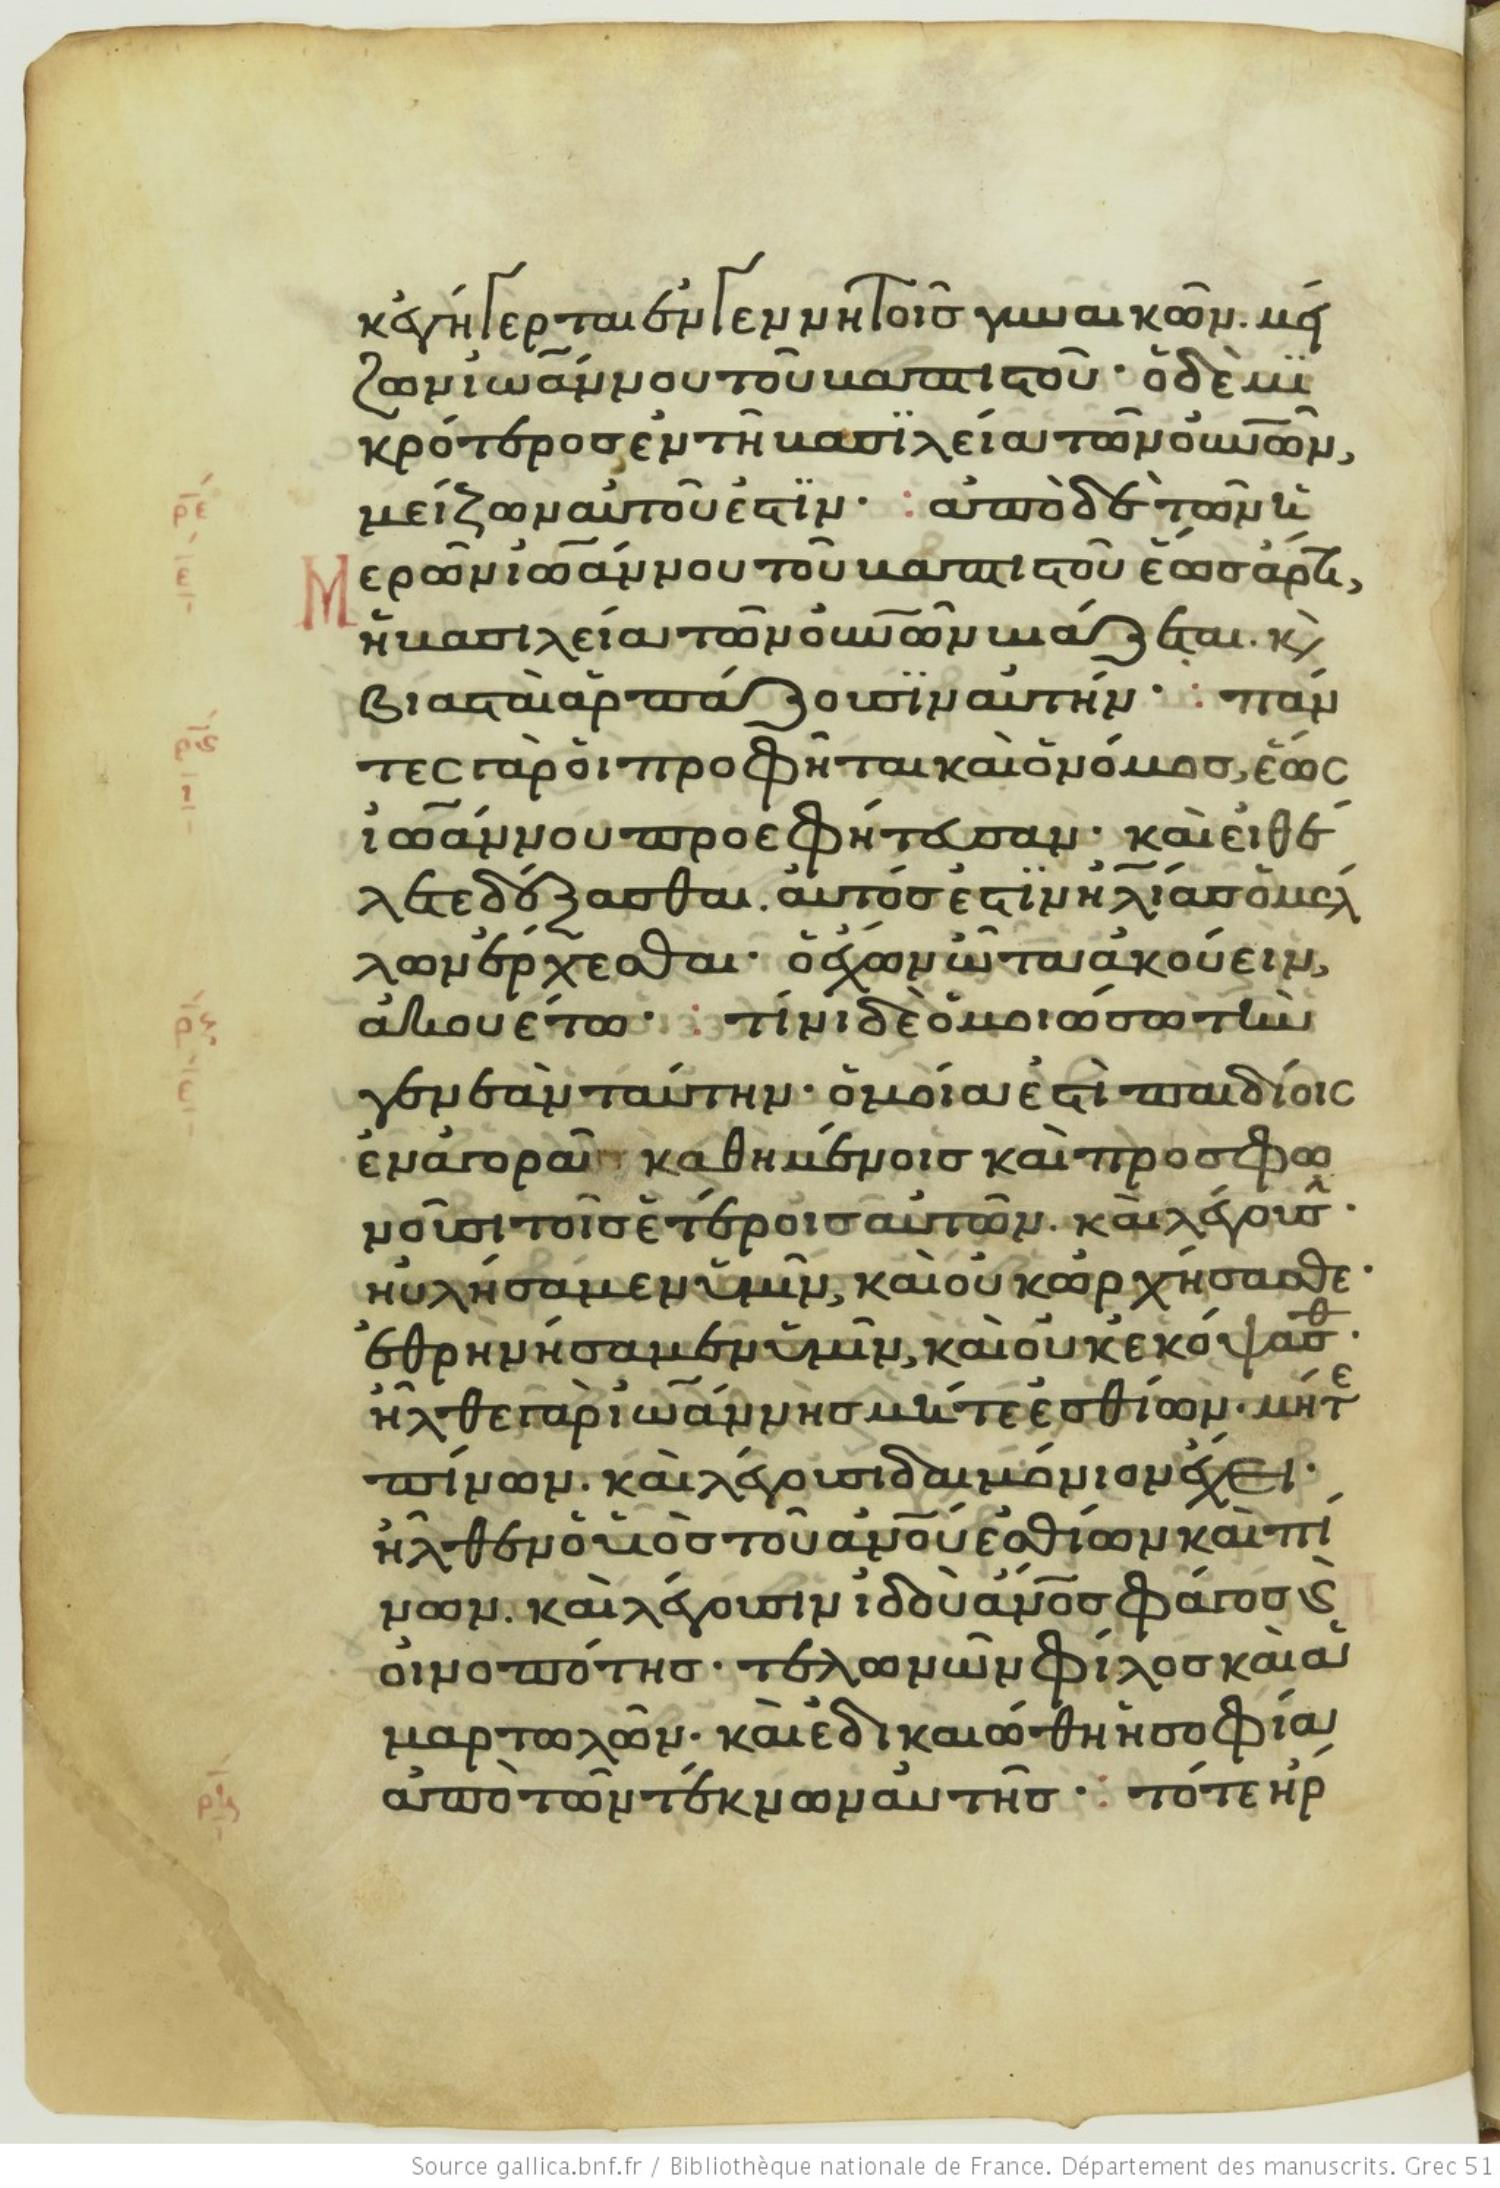 κ ἐγήγερται ἐν γεννητοῖς γυναικῶν. μεί
ζων ἰω̅άννου τοῦ βαπτιστοῦ· ὁ δὲ μϊ
κρότερος ἐν τῆ βασϊλεία τῶν οὐν̅ῶν,
μείζων αὐτοῦ ἐστϊν· : ἀπὸ δὲ τῶν ἡ
μερῶν ἰω̅άννου τοῦ βαπτιστοῦ ἕως ἄρτι,
ἡ βασιλεία τῶν οὐν̅ῶν βιάζεται. κ̀
βιασταὶ ἁρπάζουσϊν αὐτήν· : πάν
τες γὰρ οἱ προφῆται καὶ ὁ νόμος, ἕως
ἰω̅άννου προεφήτευσαν· καὶ εἰ θέ
λετε δέξασθαι. αὐτός ἐστϊν ἠλίας ὁ μέλ
λων ἔρχεσθαι· ὁ ἔχων ὦτα ἀκούειν,
ἀκουέτω· : τίνι δὲ ὁμοιώσω τὴν
γενεὰν ταύτην· ὁμοία ἐστὶ παιδίοις
ἐν ἀγορᾶι καθημένοις καὶ προσφω
νοῦσι τοῖς ἑτέροις αὐτῶν. καὶ λέγουσ̑·
ηὐλήσαμεν ὑμῖν, καὶ οὐκ ὠρχήσασθε·
ἐθρηνήσαμεν ὑμῖν, καὶ οὐκ ἐκόψασθ·
ἦλθε γὰρ ἰω̅άννης μήτε ἐσθίων· μήτε
πίνων. καὶ λέγουσι δαιμόνιον ἔχει·
ἦλθεν ὁ υἱὸς τοῦ ἀν̅ου ἐσθίων καὶ πί
νων. καὶ λέγουσιν ἰδοὺ ἄν̅ος φάγος ϗ̀
οἰνοπότης· τελωνῶν φίλος καὶ ἁ
μαρτωλῶν· καὶ ἐδικαιώθη ἡ σοφία
ἀπὸ τῶν τέκνων αὐτῆς· : τότε ἤρ
ρε
ε
Μ
ρς
ι
ρζ
ε
ρη
Source gallica.bnf.fr / Bibliothèque nationale de France. Département des manuscrits. Grec 51